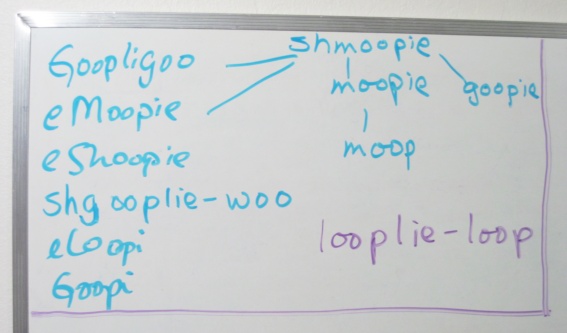 Goopligoo
eMoopie
eShoopie
shgooplie-woo
eLoopi
Goopi
shmoopie
moopie
goopie
moop
looplie-loop